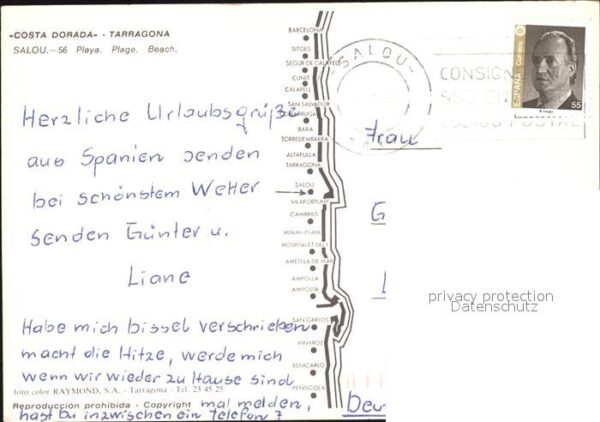 «COSTA DORADA» - TARRAGONA
SALOU.—56 Playa. Plage. Beach.
Herzliche Urlaubsgrüße
aus Spanien senden
bei schönstem Wetter
senden Günter u.
Liane
Habe mich bissel verschrieben
macht die Hitze, werde mich
wenn wir wieder zu Hause sind
foto color RAYMOND, S.A. - Tarragona - Tel. 23 45 25
Reproducción prohibida - Copyright mal melden,
hast Du inzwischen ein Telefon?
BARCELONA
SITGES
SEGUR DE CALAFELL
CUNIT
CALAFELL
SAN SALVADOR
BARA
TORREDEMBARRA
ALTAFULLA
TARRAGONA
SALOU
VILAFORTUNY
CAMBRILS
MIAMI-PLAYA
HOSPITALET DE I.
AMETLLA DE MAR
AMPOLLA
AMPOSTA
SAN CARLOS
VINAROZ
BENICARLO
PEÑISCOLA
-SALOU-
CONSIGN
CODIGO POSTAL
ESPAÑA Correos
55
Frau
G
Deu
privacy protection
Datenschutz